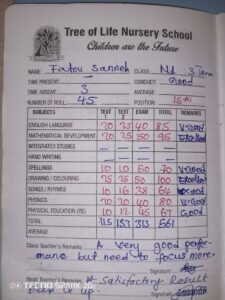 Tree of Life Nursery School
Children are the Future
NAME: Fatou Sanneh CLASS: Nd 3 Term
TIME PRESENT: CONDUCT: Good
TIME ABSENT: 3 AVERAGE:
NUMBER OF ROLL 45 POSITION: 15th
SUBJECTS TEST 1 TEST 2 EXAM TOTAL REMARKS
ENGLISH LANGUAGE 20 25 40 85 V.Good
MATHEMATICAL DEVELOPMENT 20 25 50 95 Excellent
INTEGRATED STUDIES
HAND WRITING
SPELLINGS 10 10 50 70 V.Good
DRAWING / COLOURING 25 25 50 100 Excellent
SONGS / RHYMES 10 16 38 64 Good
PHONICS 20 20 40 80 V.Good
PHYSICAL EDUCATION (PE) 10 12 45 67 Good
TOTAL 115 133 313 561
AVERAGE
Class Teacher's Remarks: A very good perfor-
mance but need to focus more.
Signature:
Head Teacher's Remarks: A Satisfactory Result
keep it up. Signature:
TECNO SPARK 20